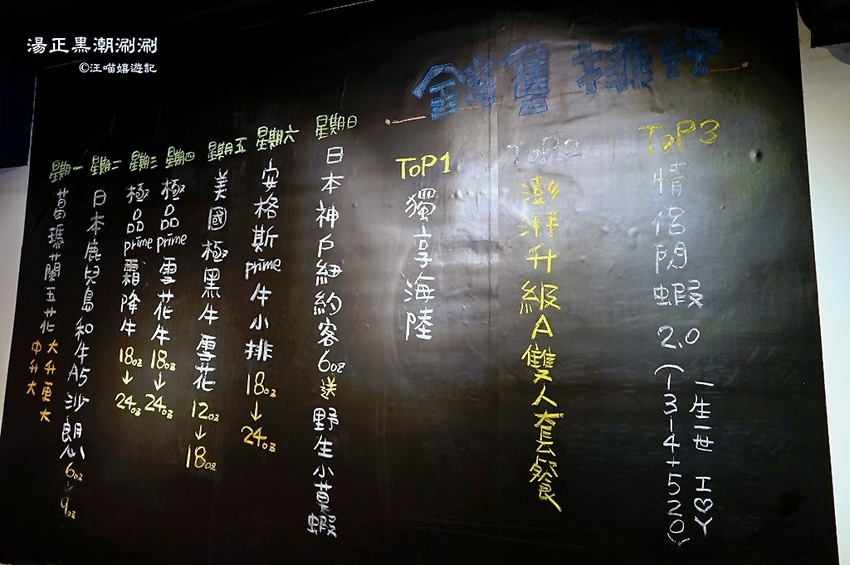 湯正黑潮涮涮
©汪喵嬉遊記
銷售排行
星期一
葛瑪蘭五花
中升大
大升更大
星期二
日本鹿兒島和牛A5沙朗心
6oz
↓
9oz
星期三
極品prime霜降牛
18oz
↓
24oz
星期四
極品prime雪花牛
18oz
↓
24oz
星期五
美國極黑牛雪花
12oz
↓
18oz
星期六
安格斯prime牛小排
18oz
↓
24oz
星期日
日本神戶紐約客6oz送野生小草蝦
TOP1
獨享海陸
TOP2
澎湃升級A雙人套餐
TOP3
情侶閃蝦2.0
(1314+520)
一生一世 I♡Y